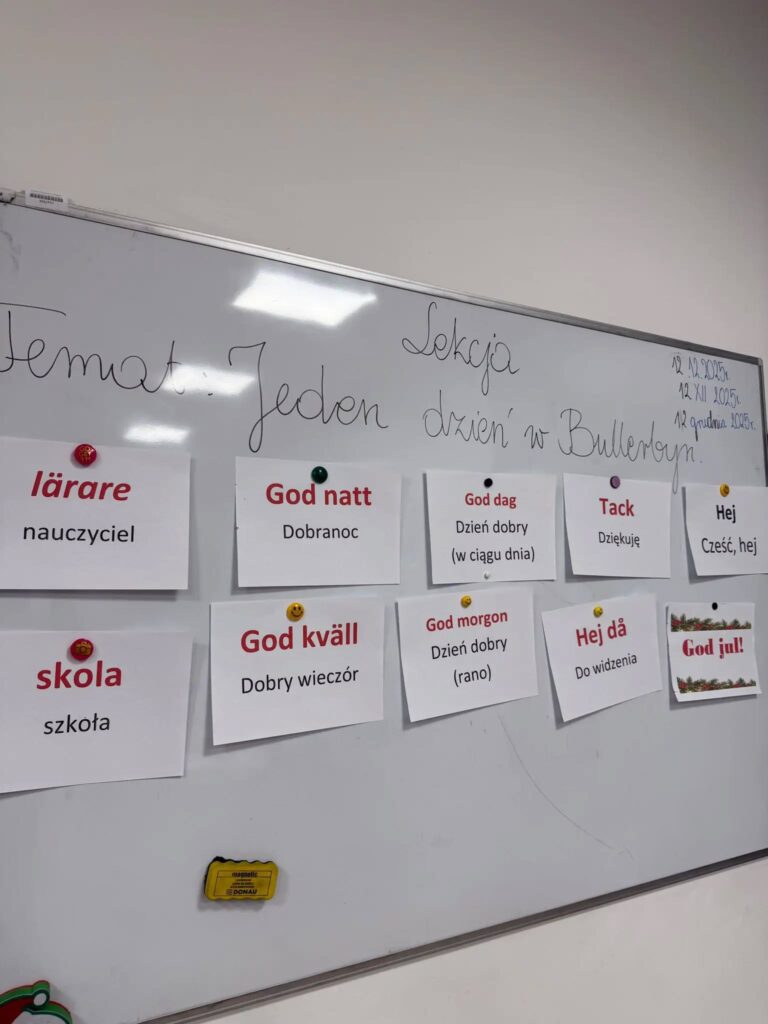 Lekcja
12.12.2025r.
12 XII 2025r.
12 grudnia 2025r.
Temat: Jeden dzień w Bullerbyn.
lärare
nauczyciel
God natt
Dobranoc
God dag
Dzień dobry
(w ciągu dnia)
Tack
Dziękuję
Hej
Cześć, hej
skola
szkoła
God kväll
Dobry wieczór
God morgon
Dzień dobry
(rano)
Hej då
Do widzenia
God jul!
magnetic
DONAU